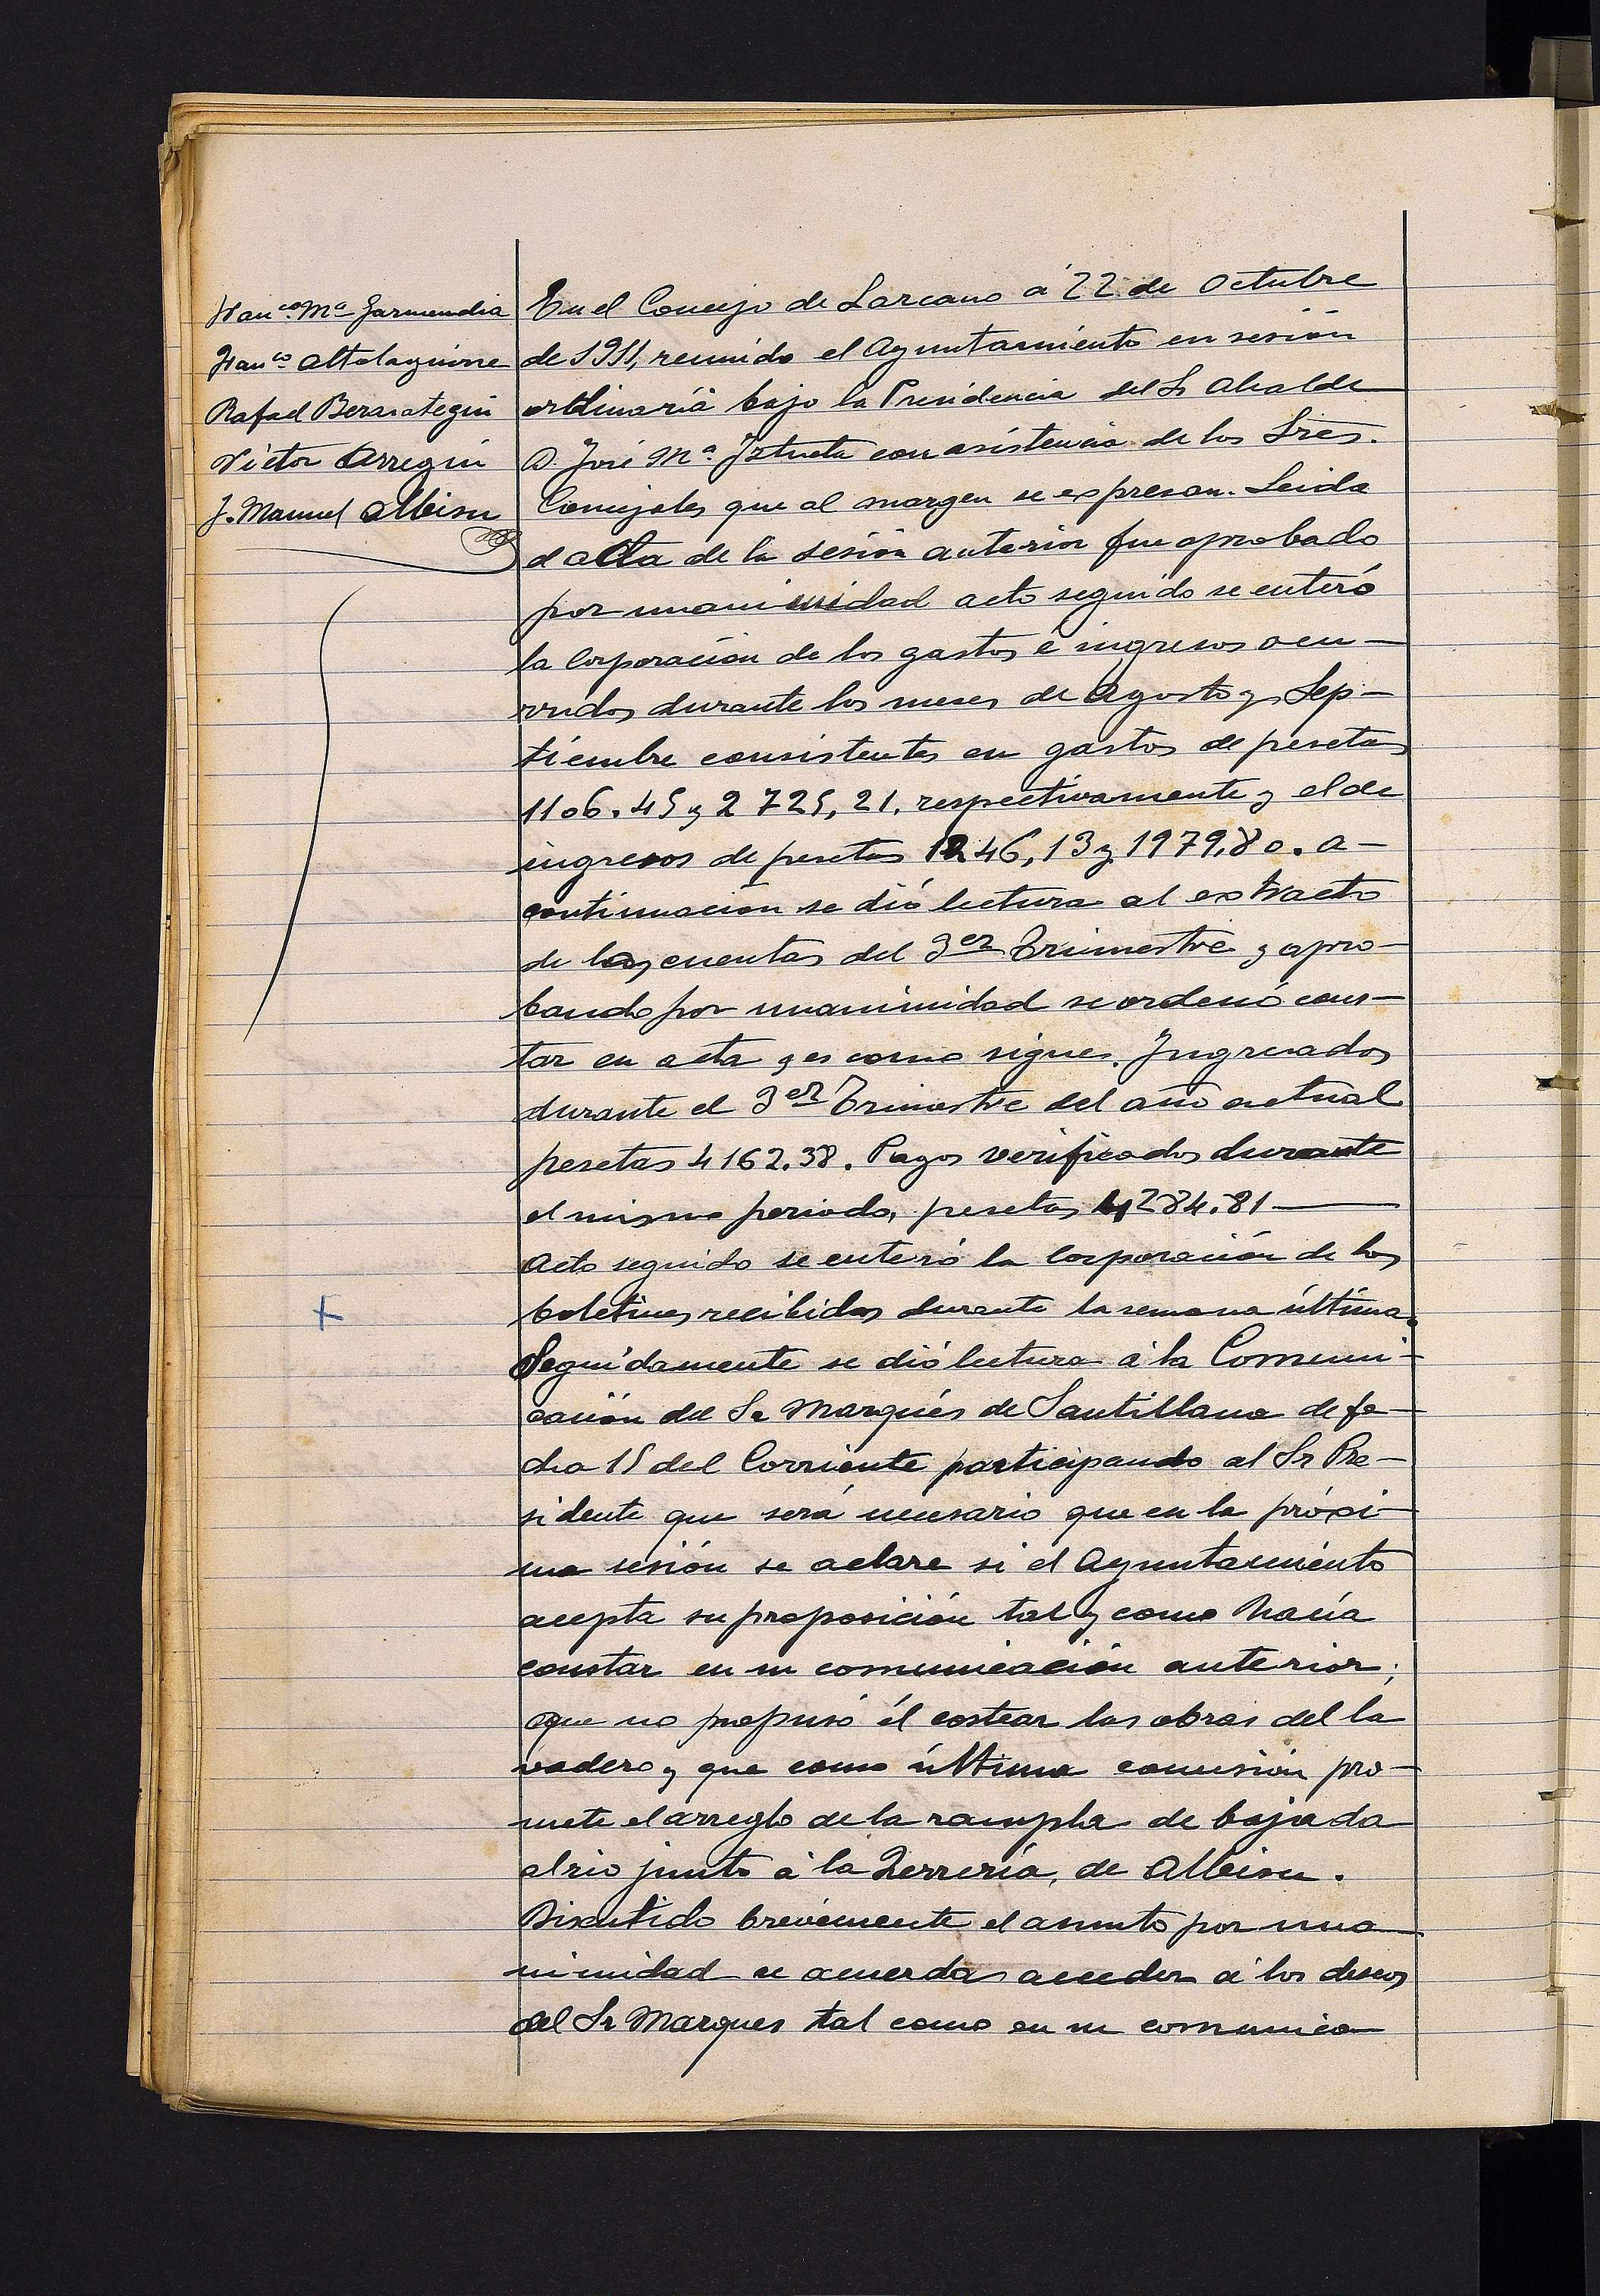 Fran.co M.a Garmendia
Fran.co Altolaguirre
Rafael Berasategui
Victor Arregui
J. Manuel Albisu
En el Concejo de Lazcano á 22 de Octubre
de 1911, reunido el Ayuntamiento en sesión
ordinaria bajo la Presidencia del Sr Alcalde
D. José M.a Iztueta con asistencia de los Sres.
Concejales que al margen se expresan. Leida
el acta de la sesión anterior fue aprobado
por unanimidad acto seguido se enteró
la Corporación de los gastos é ingresos ocu-
rridos durante los meses de Agosto y Sep-
tiembre consistentes en gastos de pesetas
1106.45 y 2725,21. respectivamente y el de
ingresos de pesetas 1246,13 y 1979,80. a-
continuación se dió lectura al extracto
de las cuentas del 3er Trimestre y apro-
bando por unanimidad se ordenó cons-
tar en acta y es como sigue. Ingresados
durante el 3er Trimestre del año actual
pesetas 4162.38. Pagos verificados durante
el mismo periodo, pesetas 4,284.81
Acto seguido se enteró la Corporación de los
boletines recibidos durante la semana última.
Seguidamente se dió lectura á la Comuni-
cación del Sr Marqués de Santillana de fe-
cha 15 del Corriente participando al Sr Pre-
sidente que será necesario que en la próxi-
ma sesión se aclare si el Ayuntamiento
acepta su proposición tal y como hacía
constar en su comunicación anterior;
que no propuso él costear las obras del la
vadero y que como última concesión pro-
mete el arreglo de la rampla de bajada
al rio junto á la Herrería, de Albisu.
Discutido brevemente el asunto por una
nimidad se acuerda acceder á los deseos
del Sr Marques tal como en su comunica